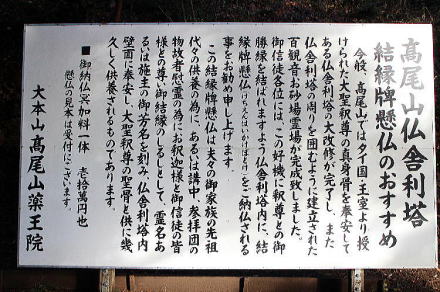 高尾山仏舎利塔
結縁牌懸仏のおすすめ
今般、高尾山ではタイ国・王室より授
けられた大聖釈尊の真身骨を奉安して
ある仏舎利塔の大改修も完了し、また
仏舎利塔の周りを囲むように建立された
百観音お砂場霊場が完成致しました。
御信徒各位には、この好機に釈尊との御
勝縁を結ばれますよう仏舎利塔内に、結
縁牌懸仏(けちえんはいかけほとけ)をご納仏される
事をお勧め申し上げます。
この結縁牌懸仏は夫々の御家族の先祖
代々の供養の為に、あるいは講中、参拝団の
物故者慰霊の為にお釈迦様と御信徒の皆
様との尊い御結縁のしるしとして、霊名あ
るいは施主の御芳名を刻み、仏舎利塔内
壁面に奉安し、大聖釈尊の聖骨と供に幾
久しく供養されるものであります。
■御納仏冥加料一体 壱拾萬円也
懸仏の見本は受付にございます。
大本山高尾山薬王院